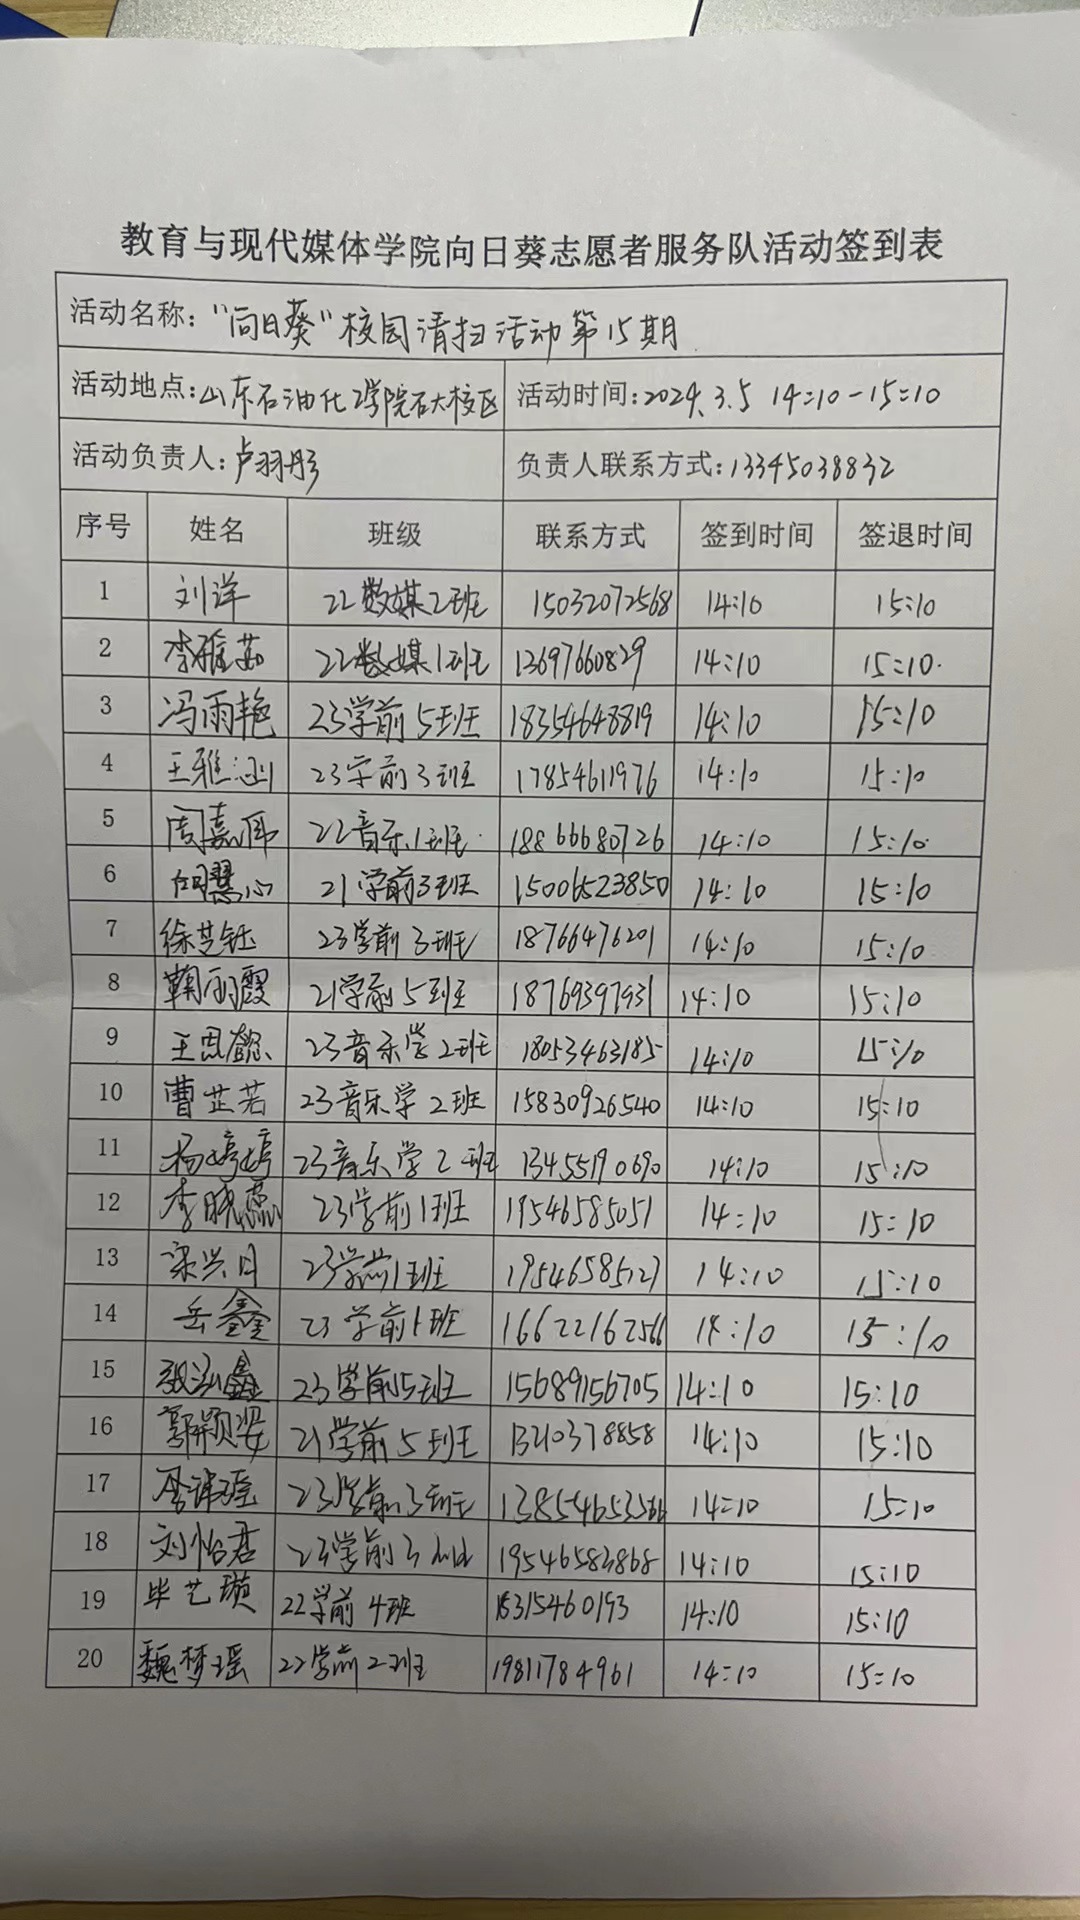 教育与现代媒体学院向日葵志愿者服务队活动签到表
活动名称："向日葵"校园清扫活动第15期
活动地点：山东石油化工学院石大校区 活动时间：2024.3.5 14:10-15:10
活动负责人：卢羽彤 负责人联系方式：13345038832
序号 姓名 班级 联系方式 签到时间 签退时间
1 刘洋 22数媒2班 15032072568 14:10 15:10
2 李雅茹 22数媒1班 13697660829 14:10 15:10
3 冯雨艳 23学前5班 18354648819 14:10 15:10
4 王雅涵 23学前3班 17854611976 14:10 15:10
5 周嘉 22音乐1班 18866680726 14:10 15:10
6 慧心 21学前3班 15006523850 14:10 15:10
7 徐芝钰 23学前3班 18766476201 14:10 15:10
8 鞠丽霞 21学前5班 18769397931 14:10 15:10
9 王思懿 23音乐学2班 18053463185 14:10 15:10
10 曹芷若 23音乐学2班 15830926540 14:10 15:10
11 杨婷婷 23音乐学2班 13455190690 14:10 15:10
12 李晓蕊 23学前1班 19546585051 14:10 15:10
13 梁兴月 23学前1班 19546585127 14:10 15:10
14 岳鑫 23学前1班 16622162566 14:10 15:10
15 张泓鑫 23学前5班 15689156705 14:10 15:10
16 郭颖姿 21学前5班 13210378858 14:10 15:10
17 23学前3班 13854653566 14:10 15:10
18 刘怡君 23学前3班 19546583868 14:10 15:10
19 毕艺璇 22学前4班 15315460193 14:10 15:10
20 魏梦瑶 22学前2班 19811784961 14:10 15:10